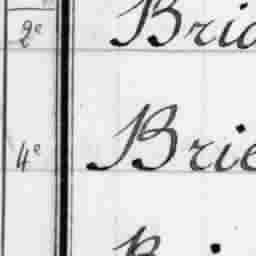 2e Bric
4e Brie